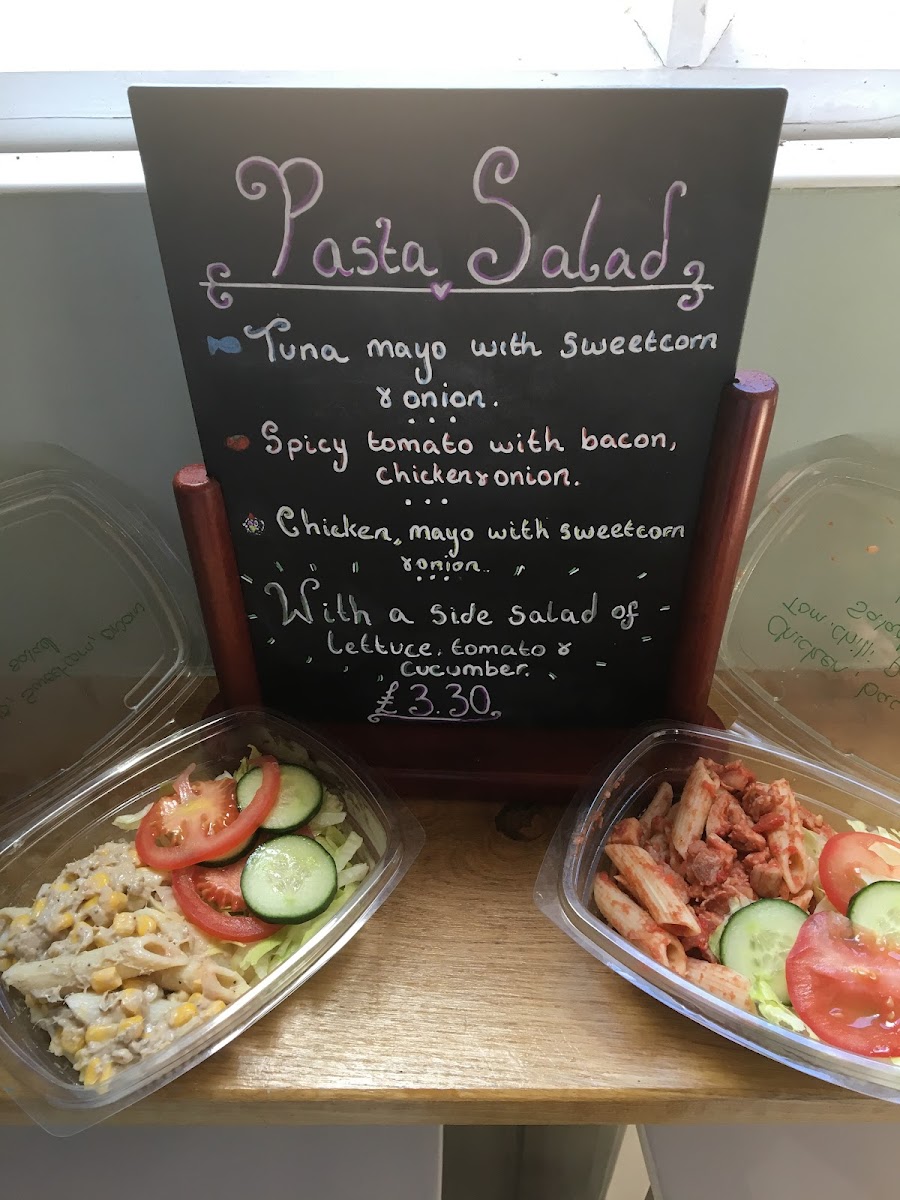 Pasta Salad
Tuna mayo with sweetcorn
& onion.
Spicy tomato with bacon,
chicken & onion.
Chicken, mayo with sweetcorn
& onion.
With a side salad of
lettuce, tomato &
cucumber.
£3.30
Sweetcorn, onion
salad
Chicken, bac
Tom, Chilli,
Salad